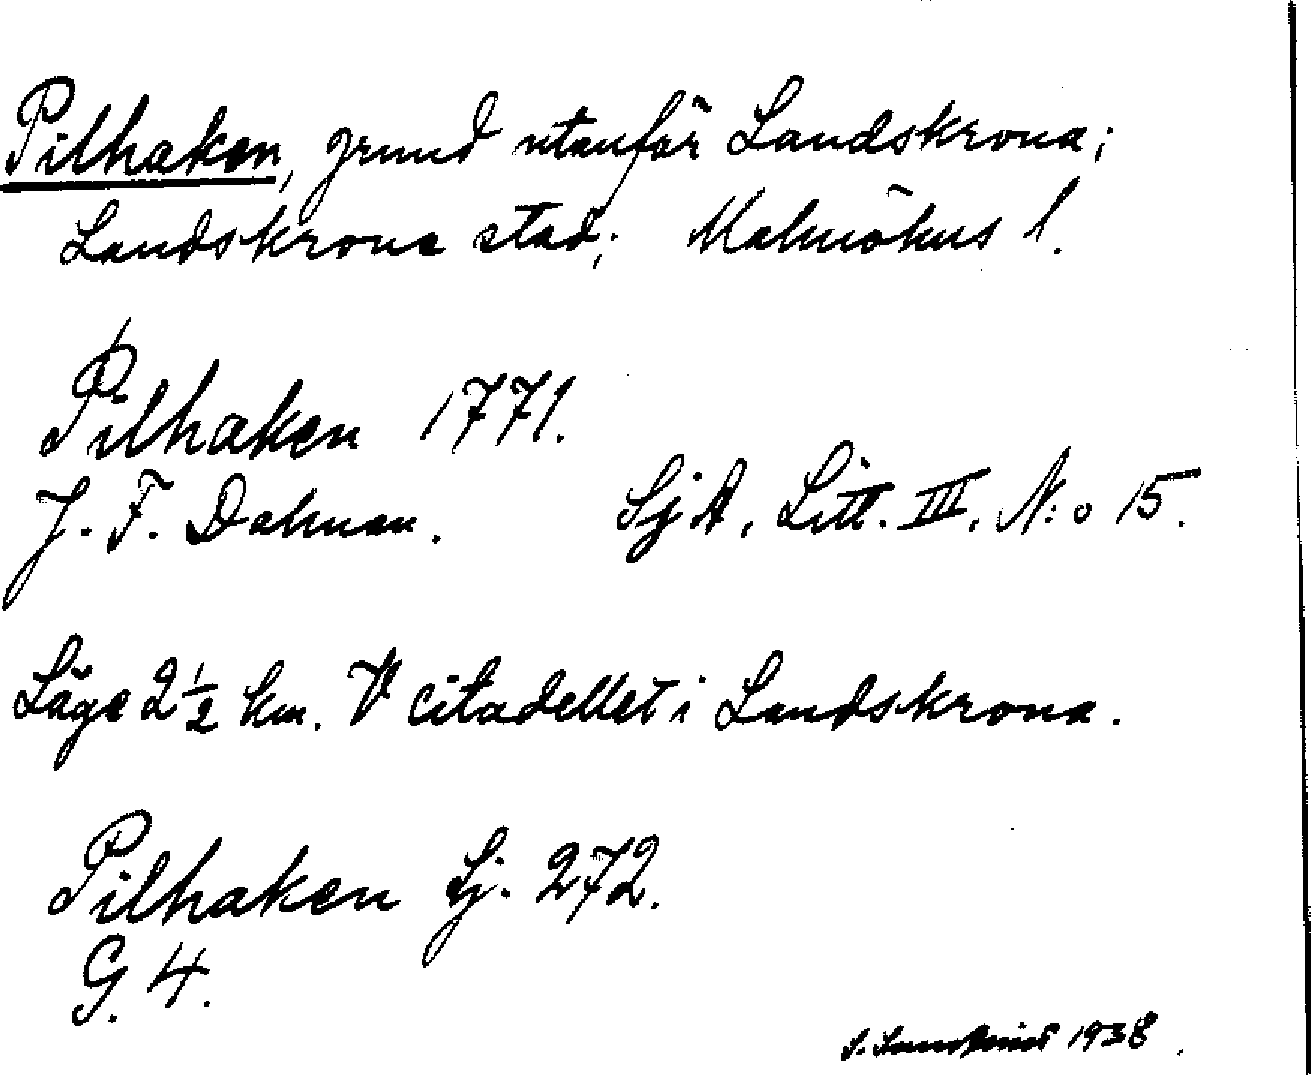 Pilhaken, grund utanför Landskrona;
Landskrona stad; Malmöhus l.
Pilhaken 1771.
J. F. Dalman. SjA, Litt. III. N:o 15.
Läge 2 1/2 km. V citadellet i Landskrona.
Pilhaken Sj. 272.
G. 4.
1938.